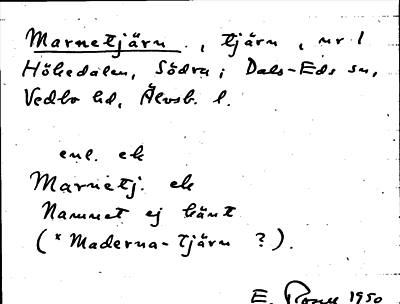 Marnetjärn, tjärn, nr 1
Hökedalen, Södra; Dals-Eds sn,
Vedbo hd, Älvsb. l.
enl. ek
Marnetj. ek
Namnet ej känt
(* Maderna-tjärn ?).
E. 1950